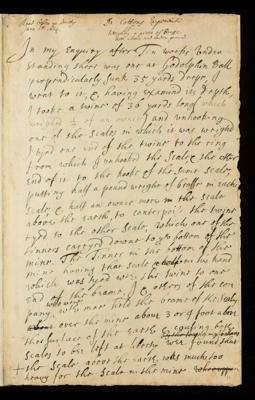 Read before ye Society
Dr Cottons Experiment
Weighing a piece of Brass
In my Enquiry after Tin works Under
standing there was one at Godolphin Ball
perpendicularly sunk 35 yards deepe, I
went to it, & having examind its depth,
I tooke a twine of 36 yards long which
weighed of an ownce and unhooking
one of the Scales in which it was weighd
I tyed one end of the twine to the ring
from which I unhooked the Scale, & the other
End of it to the hooke of the same scale,
putting half a pound weight of brasse in each
Scale, & half an ownce more in the scale
above the earth, to conterpois the twine
tyed to the other Scale, which one of the
tinners caryed downe to ye bottom of the
mine. The Tinner in the bottom of the
mine having that scale in his hand
which was tyed with the twine to one
End of the beame, & others of the com
pany, with mee held the beame of the Scales,
over the mine about 3 or 4 foot above
the surface of the earth & causing both
Scales to be left at liberty wee found that
the Scale above the earth was much too
heavy for the Scale in the mine